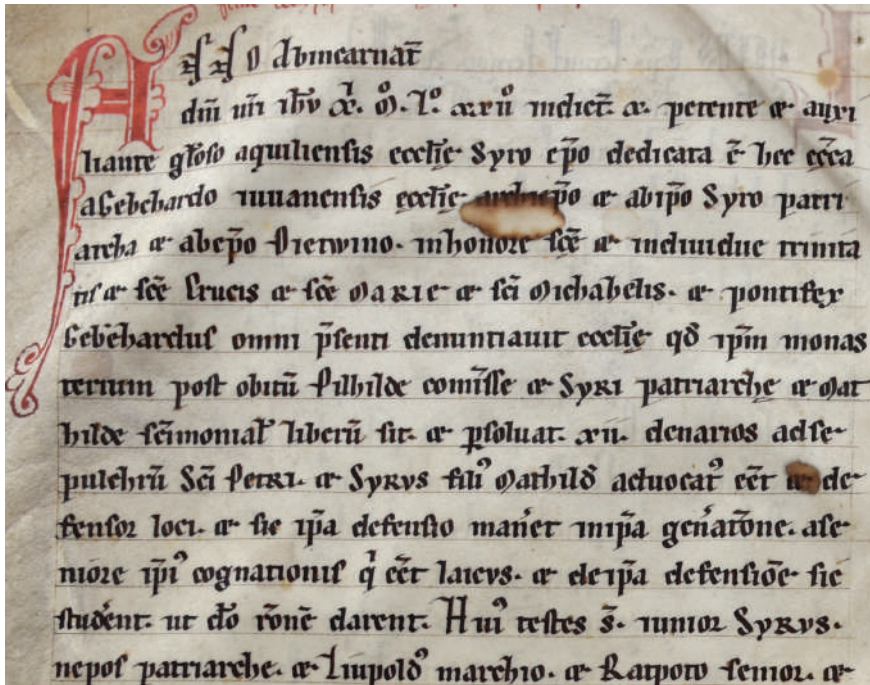 ANNO ab incarnat̄
dn̄i nr̄i ih̄u xp̄i. ō. M. Lo. xxii indict̄. x. petente & auxi
liante gl̄oso aquiliensis eccl̄ie Syro ep̄o dedicata ē hec ecc̄a
a Gebehardo iuuanensis eccl̄ie archiep̄o & ab ip̄o Syro patri
archa & ab ep̄o Pietwino. in honore sc̄e & indiuidue trinita
tis & sc̄e Crucis & sc̄e MARIE & sc̄i Michahelis. & pontifex
Gebehardus omni p̄senti denuntiauit eccl̄ie qd̄ ip̄m monas
terium post obitū Pilhilde comīsse & SYRI patriarche & Mat
hilde sc̄imonial̄ liberū sit. & ꝑsoluat. xii. denarios ad se
pulchrū Sc̄i PETRI. & SYRVS filiꝰ Mathild̄ aduocatꝰ eēt & de
fensor loci. & sic ip̄a defensio man̄et in ip̄a gen̄atōne. a se
niore ip̄iꝰ cognationis q̇ eēt laicvs. & de ip̄a defensiōe sic
stud̄ent. ut dō rōnē darent. Huiꝰ testes s̄. iunior SYRVS.
nepos patriarche. & Liupoldꝰ marchio. & Ratpoto senior. &